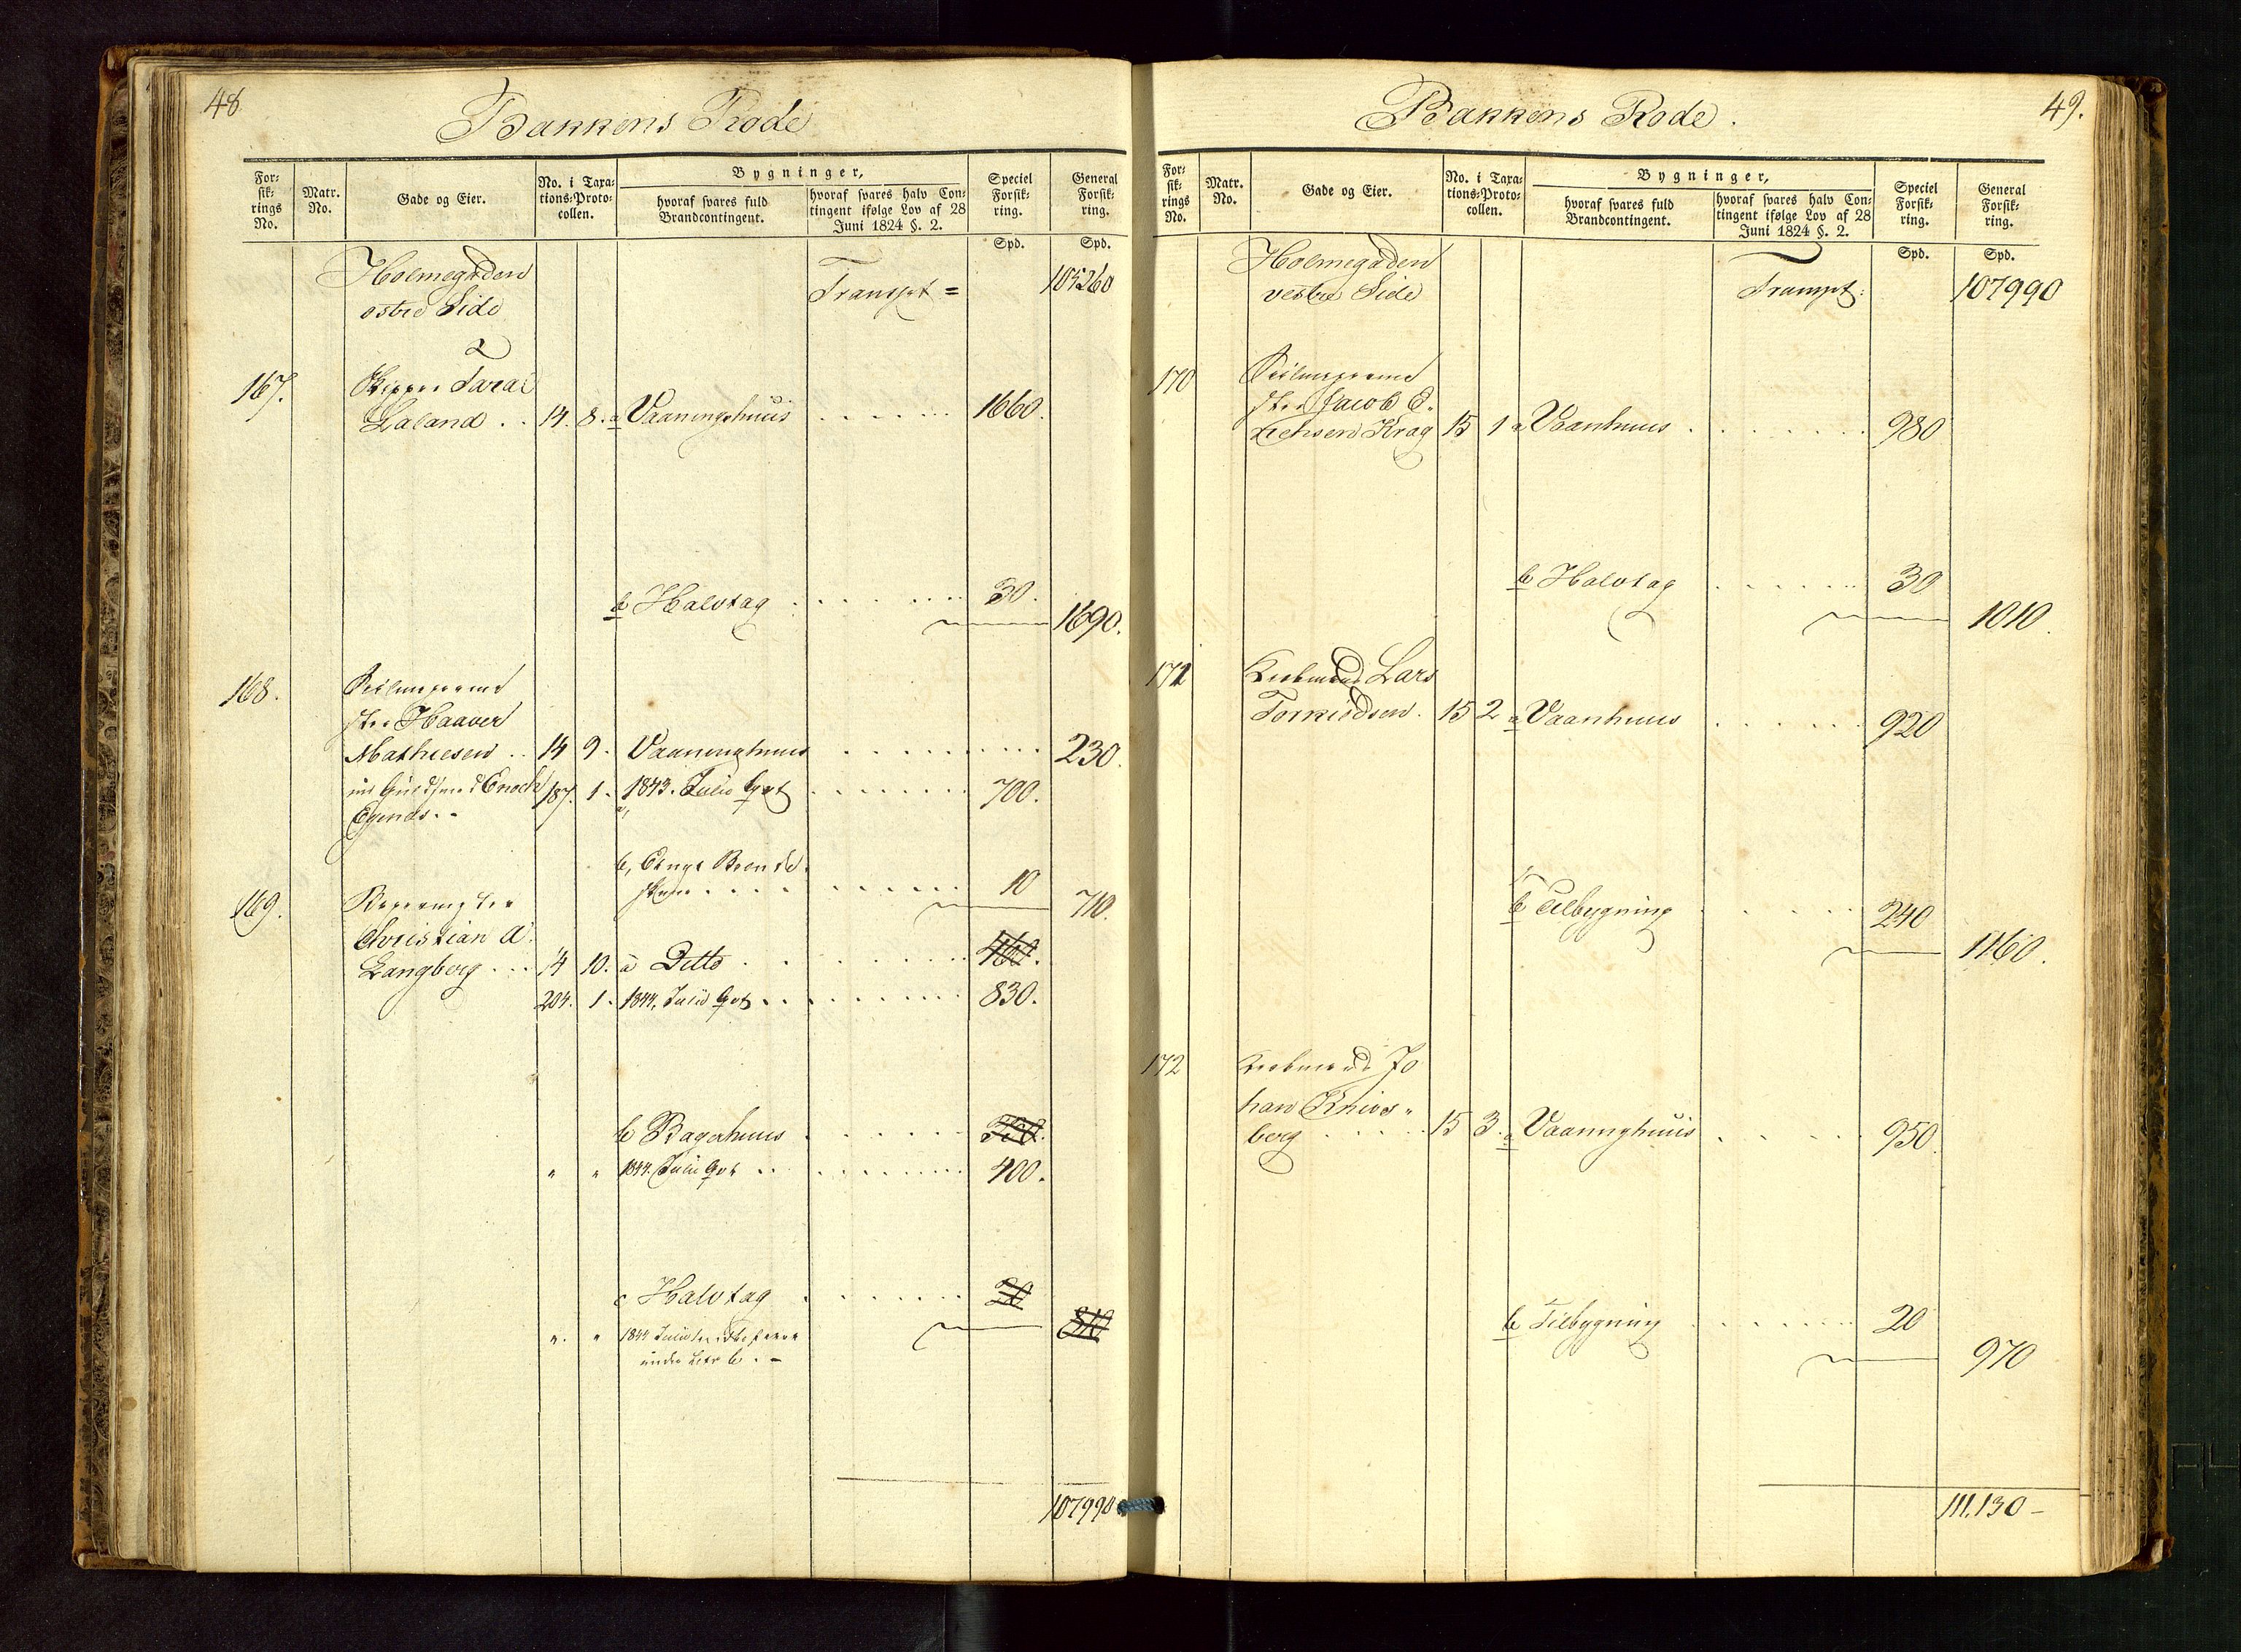 48
Bakkens Rode
For-
sik-
rings
No.
Matr.
No.
Gade og Eier.
No. i Taxa-
tions-Proto-
collen.
Bygninger,
hvoraf svares fuld
Brandcontingent.
hvoraf svares halv Con-
tingent ifølge Lov af 28
Juni 1824 §. 2.
Speciel
Forsik-
ring.
General
Forsik-
ring.
Spd. Spd.
Holmegaden
østre Side
Transpt = 105260
167. Skipper Taral
Laland . . 14. 8. a Vaaningshuus . . . . 1660.
b Halvtag . . . . 30.
1690.
168.
Haaver
Mathiesen . . 14 9. Vaaninghuus . . . . 230.
Enoch 187. 1. 1843. Julii Qvt . . . . 700.
Egends. - a,
b,
10
710.
169.
Christian A.
Langberg . . . 14 10. a Ditto . . . . 460.
204. 1. 1844. Julii Qvt . . . . 830.
b Bagerhuus . . . .
" " 1844. Julii Qvt . . . . 400.
c Halvtag . . . . 20
810
". " 1844 Julii
under Litr b. -
107990
49.
Bakkens Rode.
For-
sik-
rings
No.
Matr.
No.
Gade og Eier.
No. i Taxa-
tions-Proto-
collen.
Bygninger,
hvoraf svares fuld
Brandcontingent.
hvoraf svares halv Con-
tingent ifølge Lov af 28
Juni 1824 §. 2.
Speciel
Forsik-
ring.
General
Forsik-
ring.
Spd. Spd.
Holmegaden
vestre Side
Transpt: 107990
170
Jacob E-
richsen Krag 15 1 a Vaanhuus . . . . 980
b Halvtag . . . . 30
1010.
171 Kiøbmand Lars
Torkildsen. 15 2 a Vaanhuus . . . . 920
b Tilbygning . . . . 240
1160.
172 Kiøbmand Jo
han Knivs"
berg . . . . 15 3. a Vaaninghuus . . . . 950.
b Tilbygning . . . . 20
970
111.130 -